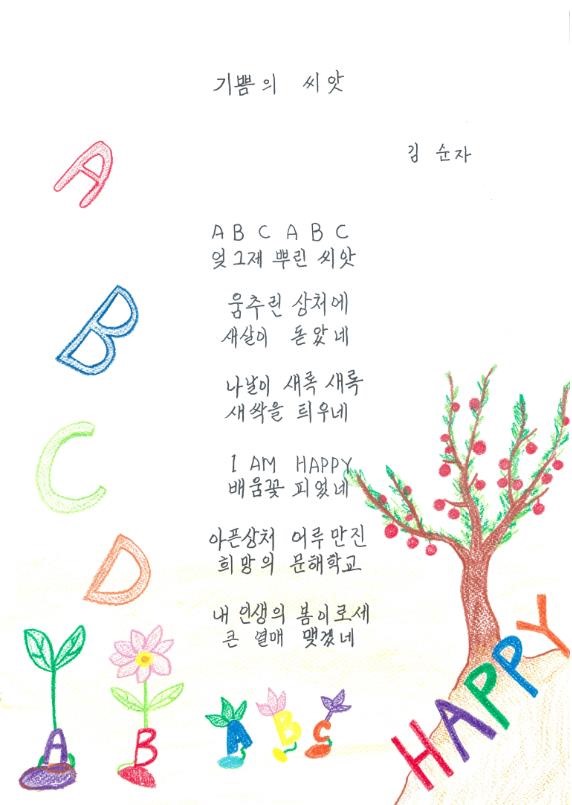 기쁨의 씨앗
김 순자
A B C A B C
엊그제 뿌린 씨앗
움추린 상처에
새살이 돋았네
나날이 새록 새록
새싹을 틔우네
I AM HAPPY
배움꽃 피었네
아픈상처 어루만진
희망의 문해학교
내 인생의 봄이로세
큰 열매 맺겠네
A
B
C
D
A B A B C
HAPPY